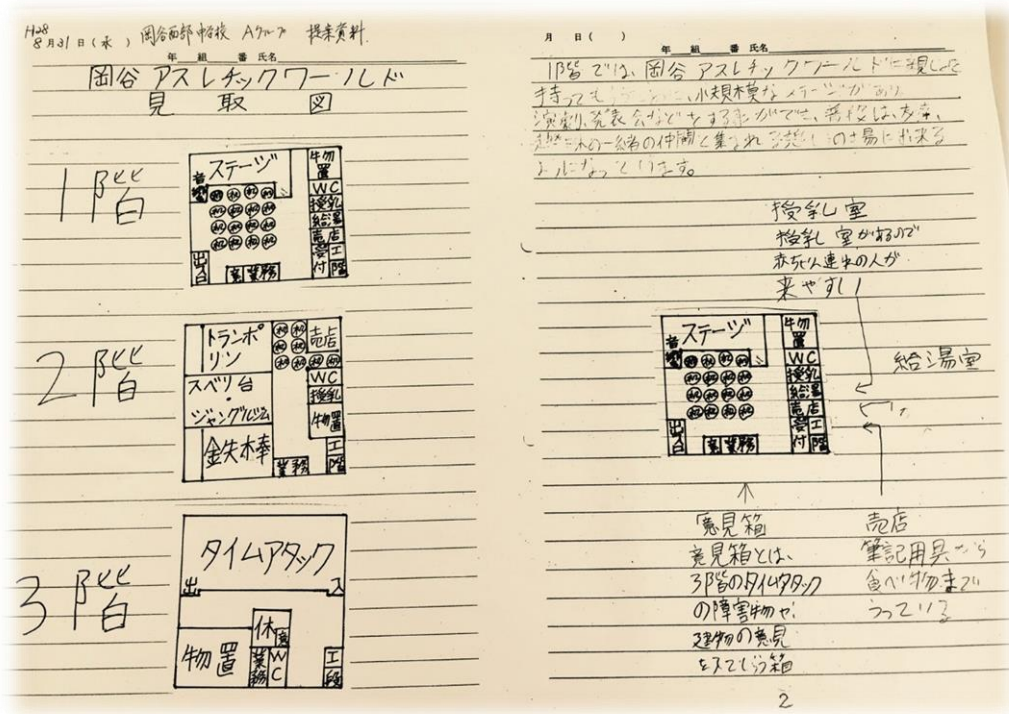 H28
8月31日(水) 岡谷西部中学校 Aグループ 提案資料
年 組 番 氏名
岡谷アスレチックワールド
見取図
1階
ステージ
音響
机 机 机 机
机 机 机 机
机 机 机 机
机 机 机 机
物置
WC
授乳
給湯
売店
受付
エ
階
出口
意
業務
2階
トランポリン
スベリ台・ジャングルジム
金失木奉
机 机
机 机
机 机 机 机
売店
WC
授乳
物置
エ
階
業務
3階
タイムアタック
出
入
物置
休
意
業務
WC
エ
段
月 日( )
年 組 番 氏名
1階では、岡谷アスレチックワールドに親しみを
持ってもらうために、小規模なステージがあり
演劇、発表会などをする事ができ、普段は、友達、
の一緒の仲間と集まれる憩いの場に出来る
ようになっています。
授乳室
授乳室があるので
赤ちゃん連れの人が
来やすい
ステージ
音響
机 机 机 机
机 机 机 机
机 机 机 机
机 机 机 机
物置
WC
授乳
給湯
売店
受付
エ
階
出口
意
業務
給湯室
意見箱
意見箱とは、
3階のタイムアタック
の障害物や、
建物の意見
を入てもらう箱
売店
筆記用具から
食べ物まで
うっている
2